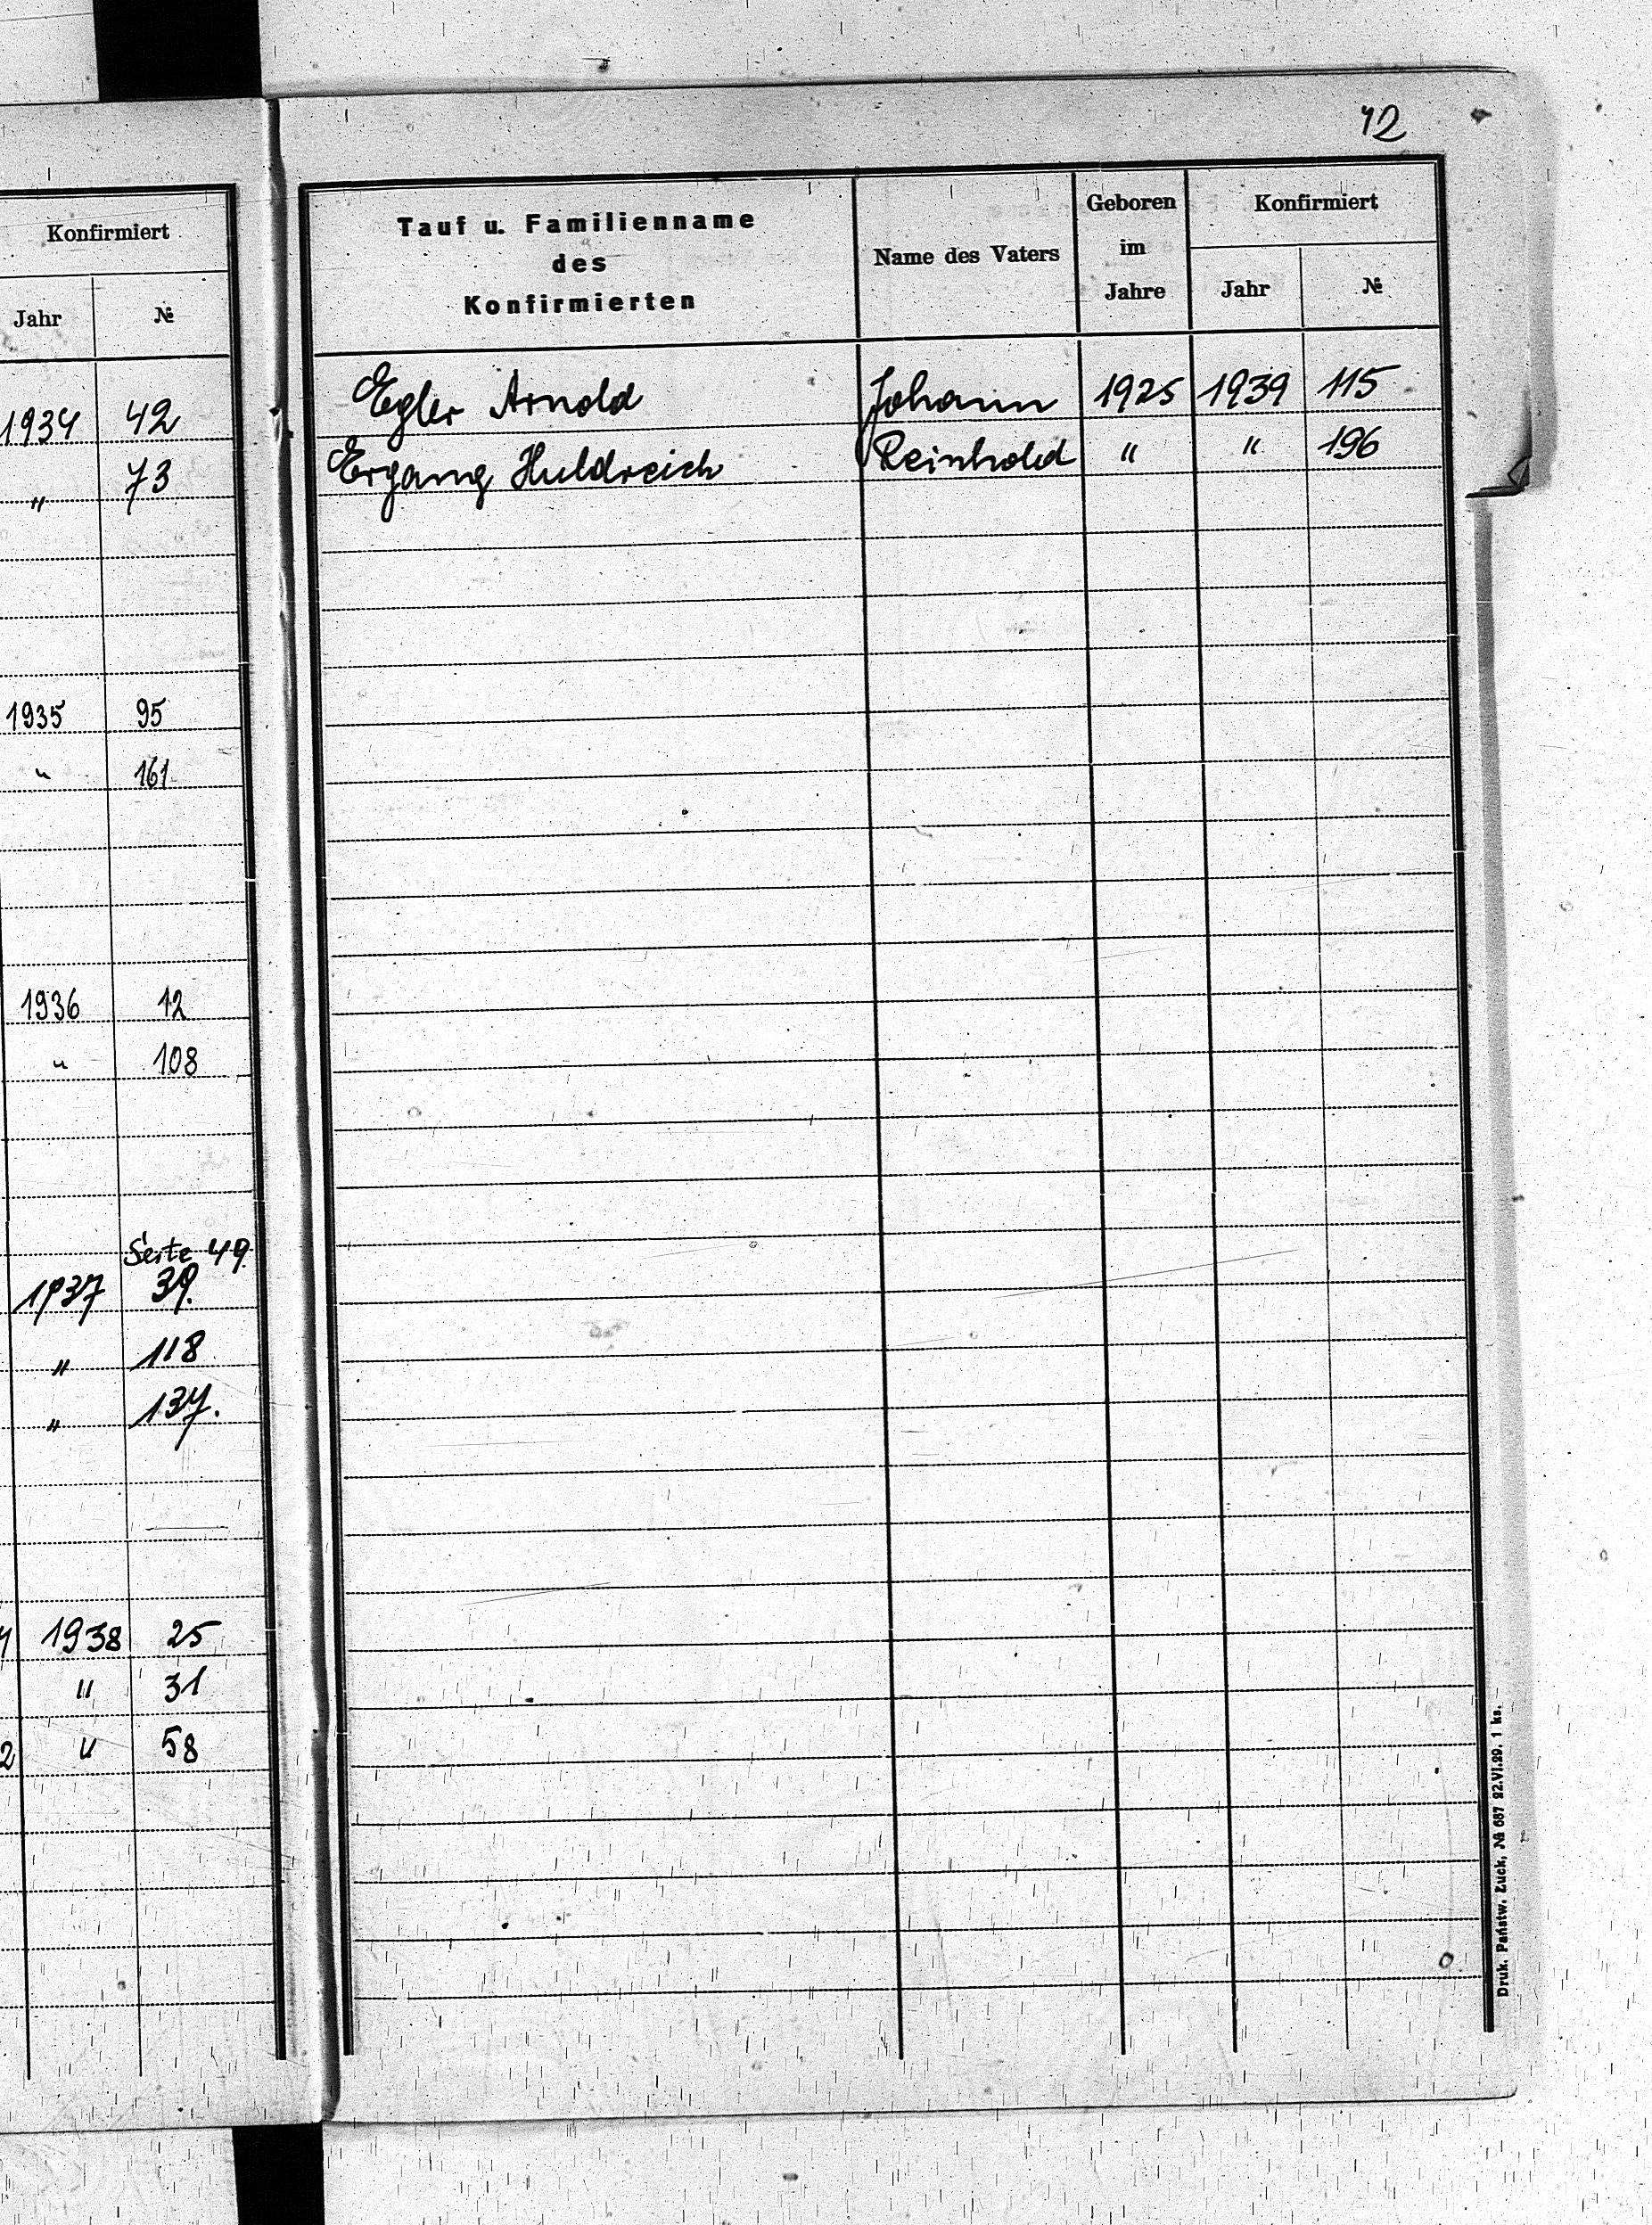 Konfirmiert
Jahr №
1934 42
" 73
1935 95
" 161
1936 12
" 108
Seite 49.
1937 39.
" 118
" 137.
1938 25
" 31
2 " 58
42
Tauf u. Familienname
des
Konfirmierten
Name des Vaters
Geboren
im
Jahre
Konfirmiert
Jahr №
Egler Arnold Johann 1925 1939 115
Ergang Huldreich Reinhold " " 196
Druk. Państw. Łuck, № 667 22.VI.29. 1 ks.